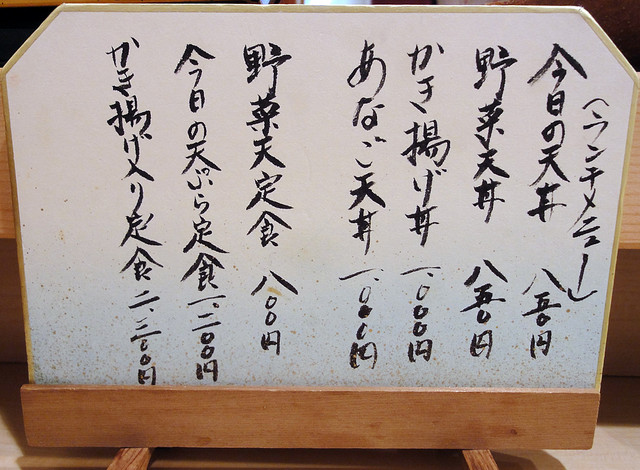 (ランチメニュー)
今日の天丼 八五〇円
野菜天丼 八五〇円
かき揚げ丼 一、〇〇〇円
あなご天丼 一、〇〇〇円
野菜天定食 八〇〇円
今日の天ぷら定食 一、二〇〇円
かき揚げ入り定食 二、三〇〇円